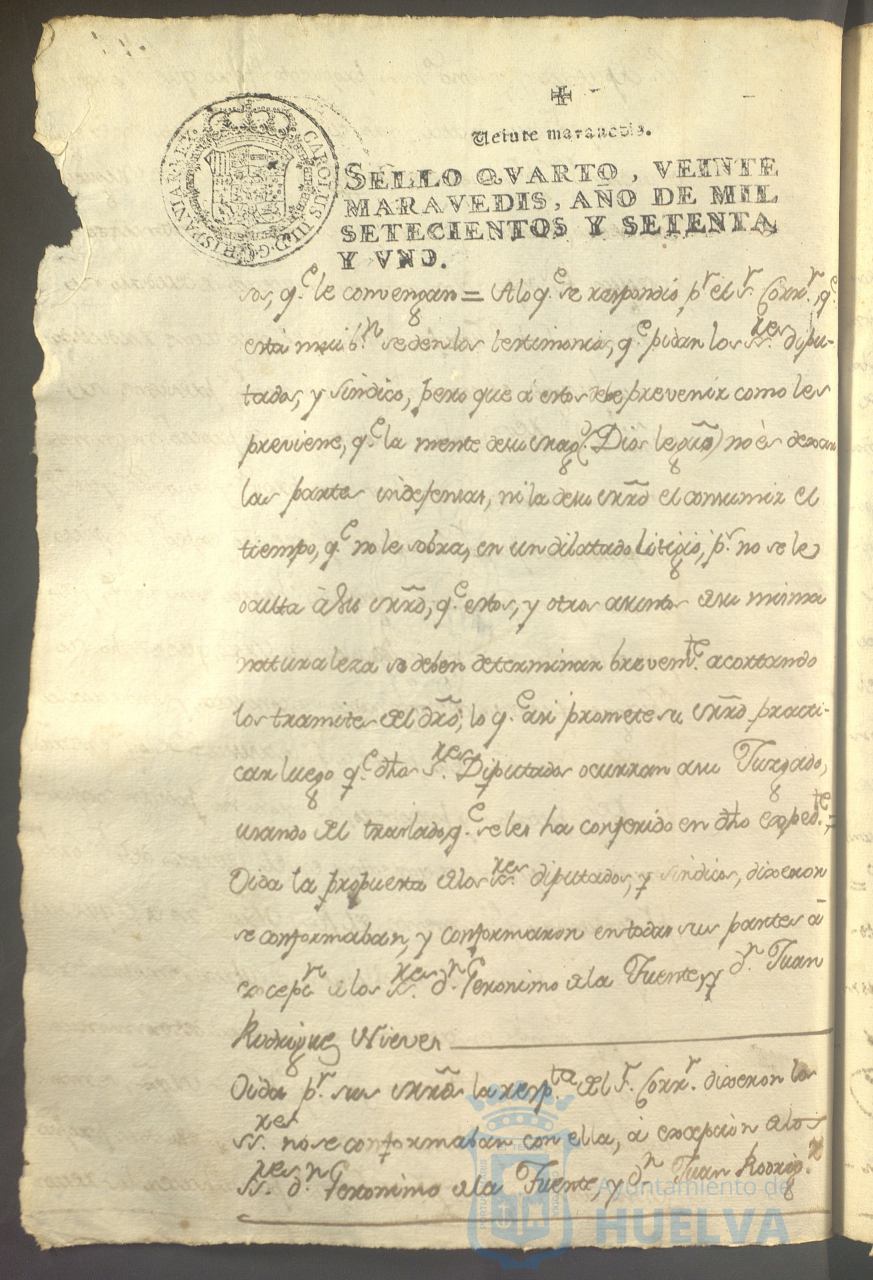 Veinte maravedis.
CAROLUS III D G HISPANIAR REX
SELLO QVARTO, VEINTE
MARAVEDIS, AÑO DE MIL
SETECIENTOS Y SETENTA
Y VNO.
q.e le convengan = A lo q.e se respondió p.r el s.r Corr.r, q.e
está mui b.n se den los testimonios, q.e pidan los ss.res dipu-
tados, y sindico, pero que á estos debe prevenir como les
previene, q.e la mente de su Mag.d (Dios le gue) no és dexar
las partes indefensas, ni la de su mrd el consumir el
tiempo, q.e no le sobra, en un dilatado Litigio, p.s no se le
oculta à su mrd, q.e estos, y otros asuntos de su misma
naturaleza se deben determinar brevem.te acortando
los tramites del dro, lo q.e asi promete su mrd practi-
car luego q.e dhos s.res Diputados ocurran a su Juzgado,
usando del traslado, q.e se les ha conferido en dho exped.te
Oida la propuesta de los ss.res diputados, y sindicos, dixeron
se conformaban, y conformaron en todas sus partes á
excepc.n de los ss.res d.n Geronimo de la Fuente, y d.n Juan
Rodriguez Nieves
Oida p.r sus mrds la resp.ta del s.r Corr.r dixeron los
ss.res no se conformaban con ella, á excepcion de los
ss.res d.n Geronimo de la Fuente, y d.n Juan Rodrig.z
Ayuntamiento de
HUELVA